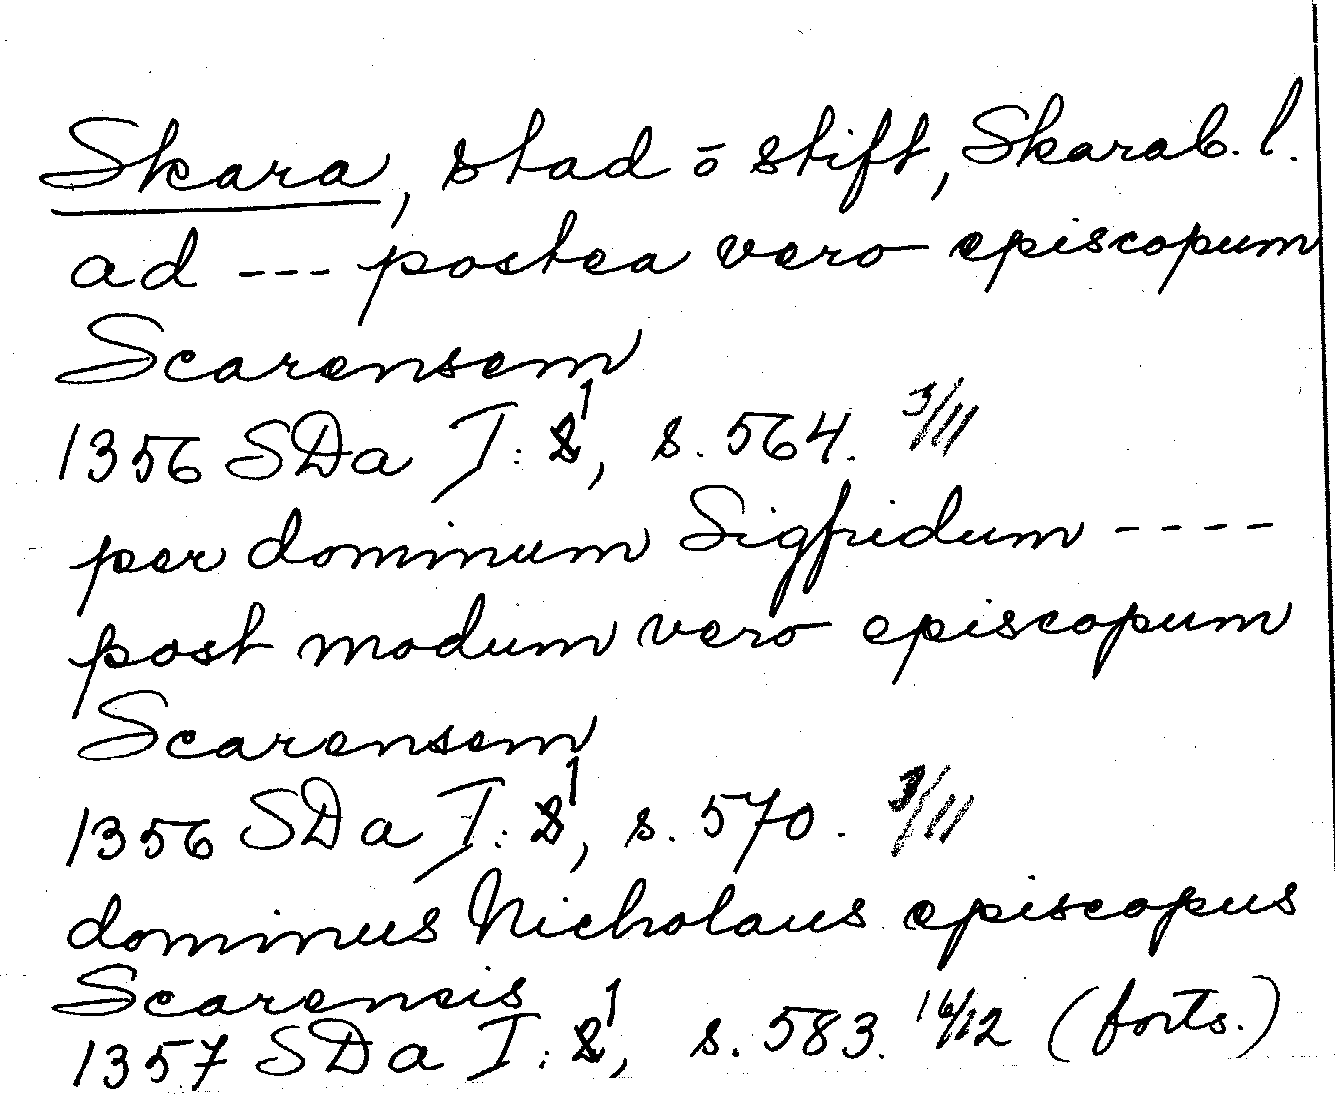 Skara, stad o stift, Skarab. l.
ad --- postea vero episcopum
Scarensem
1356 SDa I: 1, s. 564. 3/11
per dominum Sigfridum ----
post modum vero episcopum
Scarensem
1356 SDa I: 1, s. 570. 3/11
dominus Nicholaus episcopus
Scarencis
1357 SDa I: 1, s. 583. 16/12 (forts.)